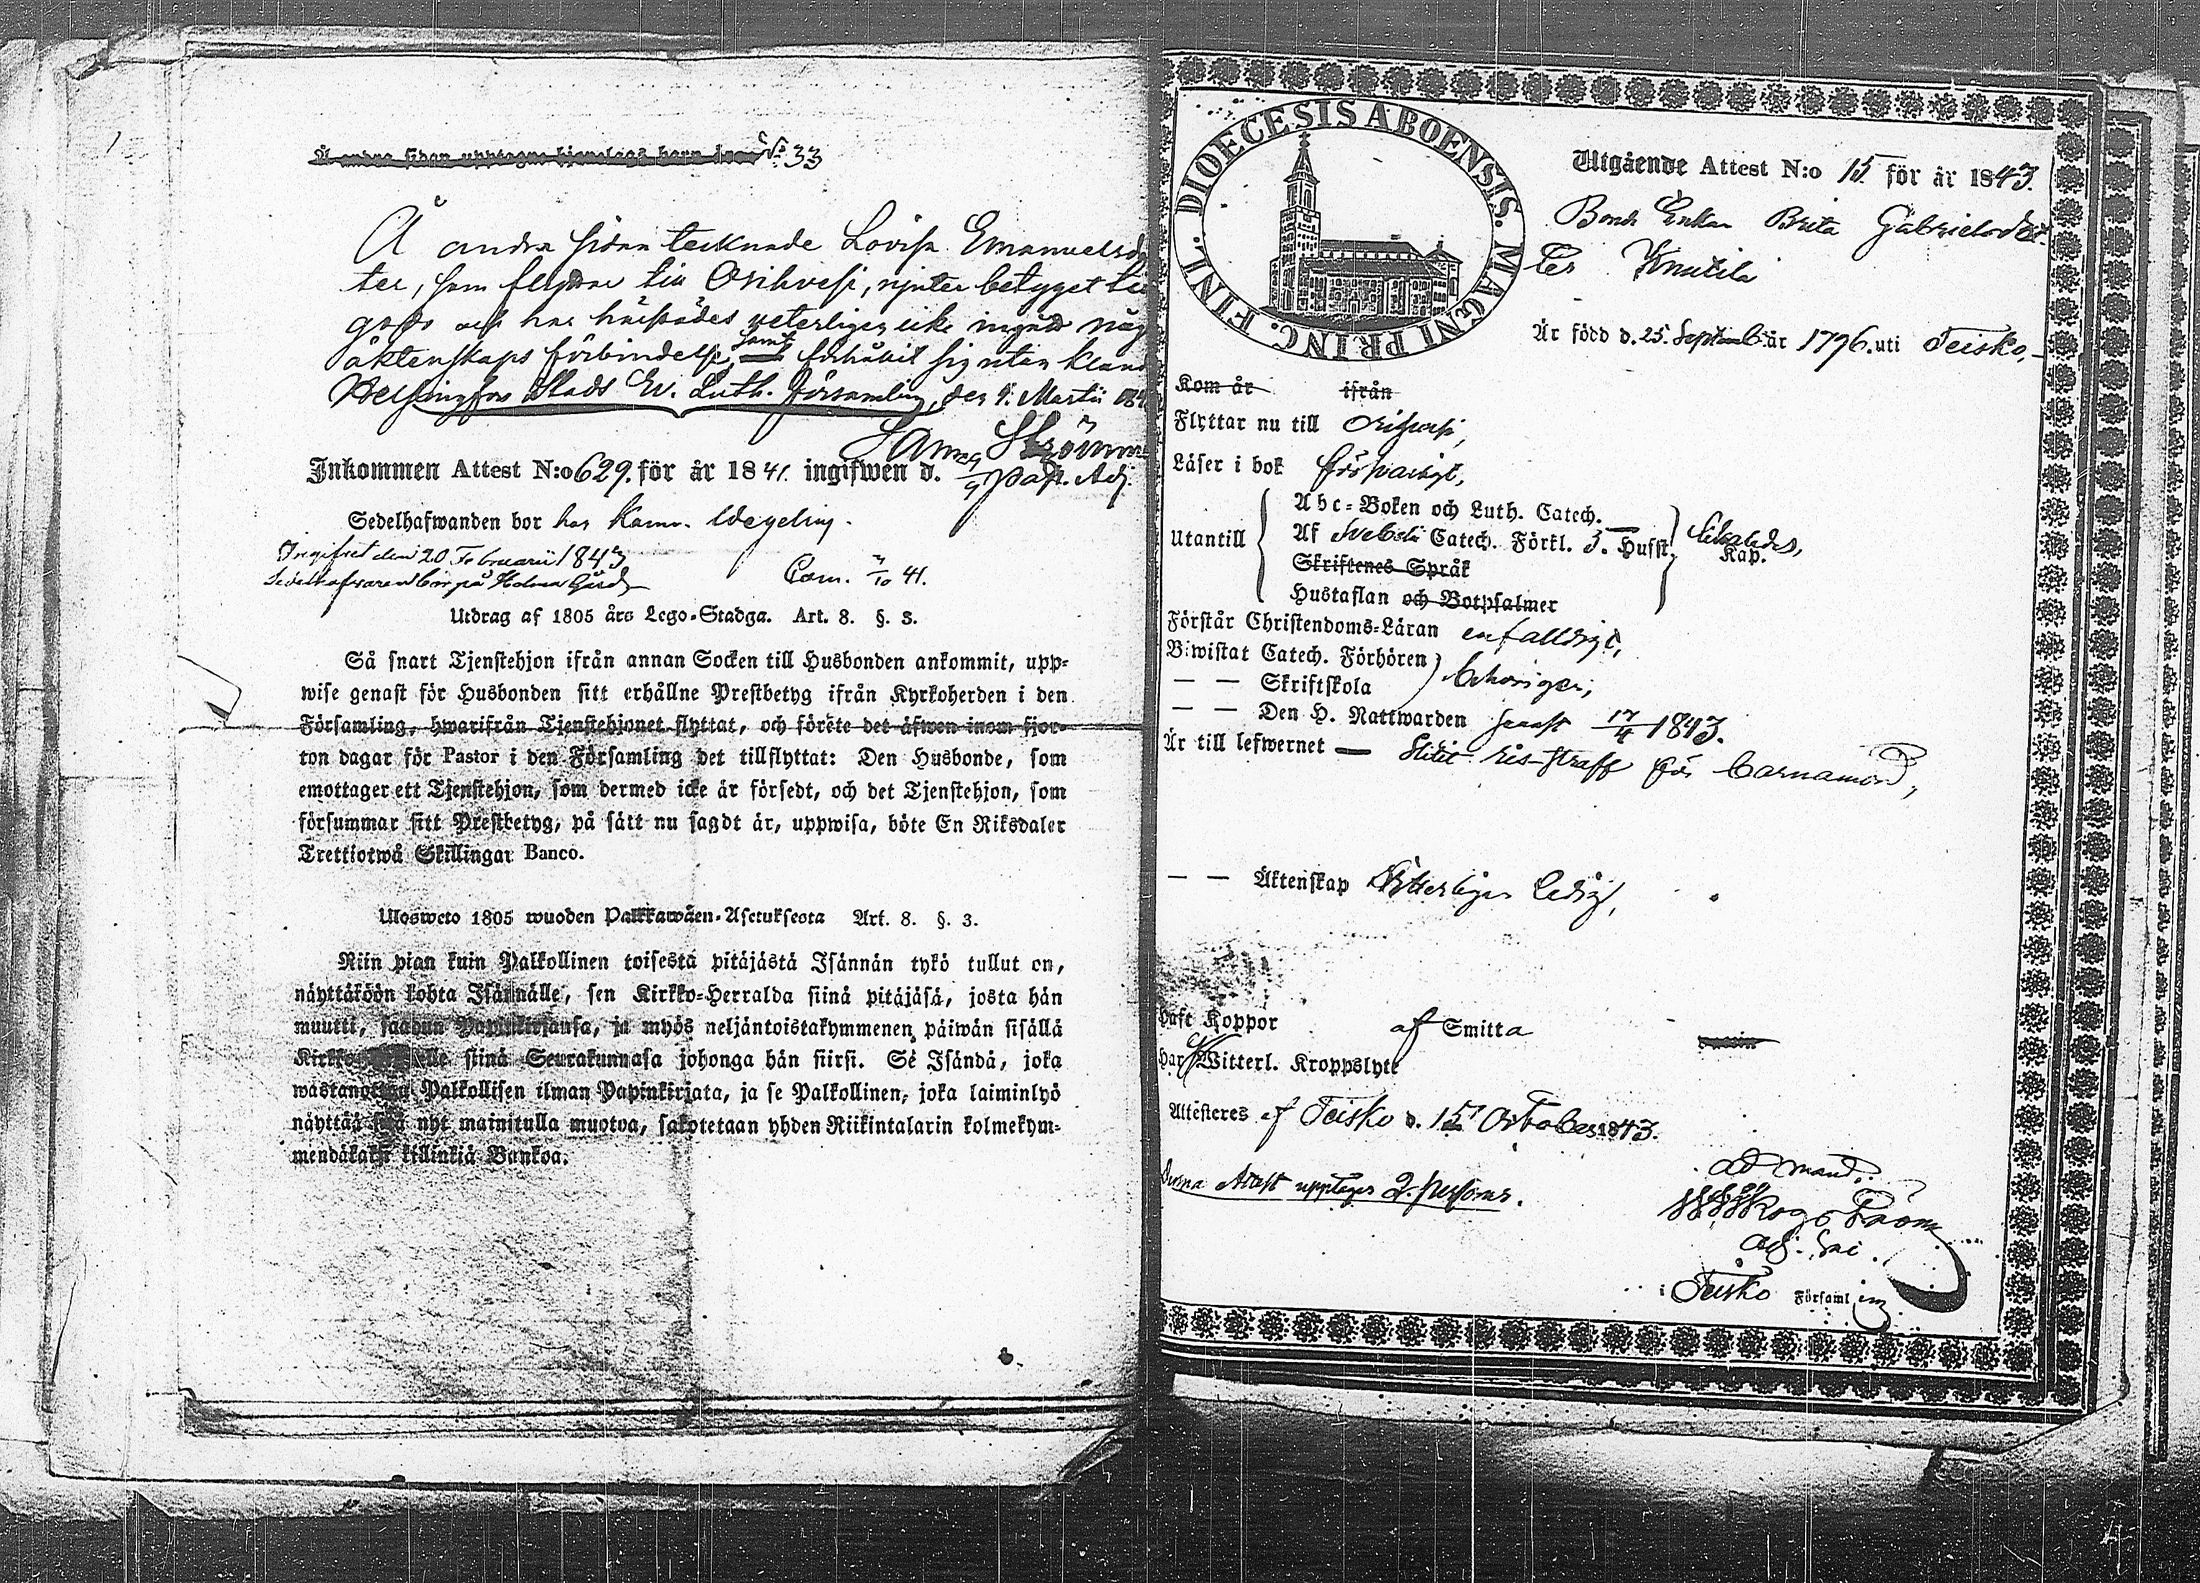 Å andra sidan upptagne tjenstehjons barn äro N:o 33
Å andra sidan tecknade Lovisa Emanuelsdot
ter, som flyttar till Orihvesi, njuter betyget
och har härstädes veterligen icke ingått någ
äktenskaps förbindelse, samt förhållit sig utan kland
Helsingfors Stads Ev. Luth. Församling, den 9. Martii 184
Inkommen Attest N:o 629. för år 1841. ingifwen d.
Past. Adj.
Sedelhafwanden bor hos Kamr. Wegelius.
Ingifvet den 20 Februarii 1843
Sedelhafvaren bor på Holma Gård
Com. 7/10 41.
Utdrag af 1805 års Lego-Stadga. Art. 8. §. 3.
Så snart Tjenstehjon ifrån annan Socken till Husbonden ankommit, upp-
wise genast för Husbonden sitt erhållne Prestbetyg ifrån Kyrkoherden i den
Församling, hwarifrån Tjenstehjonet flyttat, och förete det äfwen inom fjor-
ton dagar för Pastor i den Församling det tillflyttat: Den Husbonde, som
emottager ett Tjenstehjon, som dermed icke är försedt, och det Tjenstehjon, som
försummar sitt Prestbetyg, på sätt nu sagdt är, uppwisa, böte En Riksdaler
Trettiotwå Skillingar Banco.
Ulosweto 1805 wuoden Palkkawäen-Asetuksesta Art. 8. §. 3.
Niin pian kuin Palkollinen toisesta pitäjästä Isännän tykö tullut on,
näyttäköön kohta Isännälle, sen Kirkko-Herralda siinä pitäjäsä, josta hän
muutti, saadun Papinkirjansa, ja myös neljäntoistakymmenen päiwän sisällä
siinä Seurakunnasa johonga hän siirsi. Se Isändä, joka
wastanottaa Palkollisen ilman Papinkirjata, ja se Palkollinen, joka laiminlyö
näyttää sitä nyt mainitulla muotoa, sakotetaan yhden Riikintalarin kolmekym-
mendäkaksi killinkiä Bankoa.
DIOECESIS ABOENSIS. MAGNI PRINC. FINL.
Utgående Attest N:o 15 för år 1843.
Bonde Enkan Brita Gabrielsdot-
ter Knutila
Är född d. 25. Septemb. år 1796. uti Teisko,
Kom år ifrån
Flyttar nu till Orihvesi,
Läser i bok försvarligt,
Utantill
Abc-Boken och Luth. Catech.
Af Svebelii Catech. Förkl. 3. Hufst. Kap.
likaledes,
Skriftenes Språk
Hustaflan och Botpsalmer
Förstår Christendoms-Läran enfaldigt,
Biwistat Catech. Förhören
— — Skriftskola
behörigen,
— — Den H. Nattwarden senast 17/4 1843.
Är till lefwernet — Slitit ris-straff för barnamord,
— — Äktenskap Vitterligen ledig,
Haft Koppor af Smitta
Har Witterl. Kroppslyte
Attesteres af Teisko d. 15 October 1843.
Denna Attest upptager 2. personer.
ad mand.
Adj. Sac.
i Teisko Församling